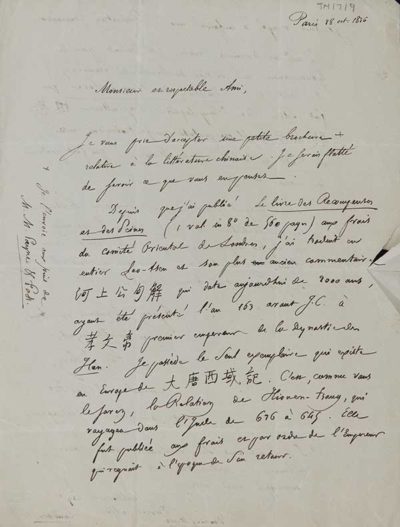 TM17/9
Paris 28 oct. 1836
Monsieur et respectable Ami,
Je vous prie d'accepter une petite brochure +
relative à la littérature chinoise. Je serais flatté
de savoir ce que vous en pensez.
Depuis que j'ai publié Le livre des Récompenses
et des Peines (1 vol in 8° de 560 pages) aux frais
du Comité Oriental de Londres, j'ai traduit en
entier Lao-tseu et son plus ancien commentaire
河上公句解 qui date aujourd'hui de 2000 ans,
ayant été présenté l'an 163 avant J.C. à
孝文帝 premier empereur de la dynastie des
Han. Je possède le seul exemplaire qui existe
en Europe de 大唐西域記. C'est, comme vous
le savez, la Relation de Hiouen-tsang, qui
voyagea dans l'Inde de 626 à 645. Elle
fut publiée aux frais et par ordre de l'Empereur
qui régnait à l'époque de son retour.
+ Je l'envoie aux soins de
M. M.